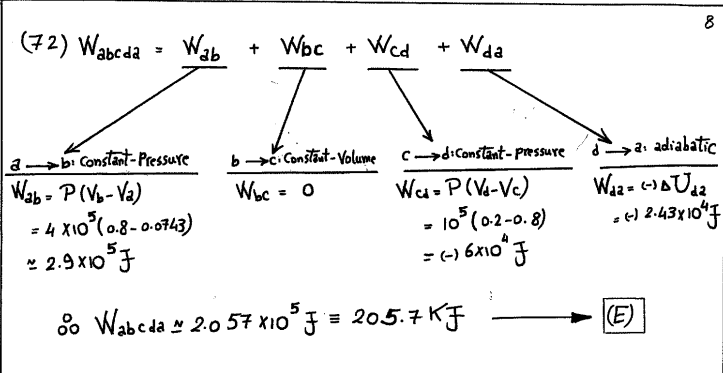 8
(72) Wabcda = Wab + Wbc + Wcd + Wda
a → b: Constant-Pressure
Wab = P(Vb-Va)
= 4 x10⁵(0.8-0.0743)
≃ 2.9x10⁵ J
b → c: Constant-Volume
Wbc = 0
c → d: Constant-Pressure
Wcd = P(Vd-Vc)
= 10⁵(0.2-0.8)
= (-) 6x10⁴ J
d → a: adiabatic
Wda = (-) ΔUda
= (-) 2.43x10⁴ J
∴ Wabcda ≃ 2.057x10⁵ J ≡ 205.7 KJ → (E)